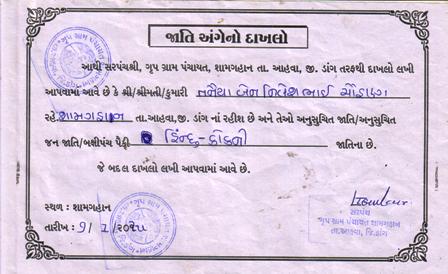 જાતિ અંગેનો દાખલો
આથી સરપંચશ્રી, ગૃપ ગ્રામ પંચાયત, શામગહાન તા. આહવા, જી. ડાંગ તરફથી દાખલો લખી
આપવામાં આવે છે કે શ્રી/શ્રીમતી/કુમારી
રહે. શામગહાન તા.આહવા,જી. ડાંગ નાં રહીશ છે અને તેઓ અનુસુચિત જાતિ/અનુસુચિત
જન જાતિ/બક્ષીપંચ પૈકી હિન્દુ-કોકની જાતિના છે.
જે બદલ દાખલો લખી આપવામાં આવે છે.
સ્થળ : શામગહાન
તારીખ :
સરપંચ
ગૃપ ગ્રામ પંચાયત શામગહાન
તા.આહવા, જિ.ડાંગ